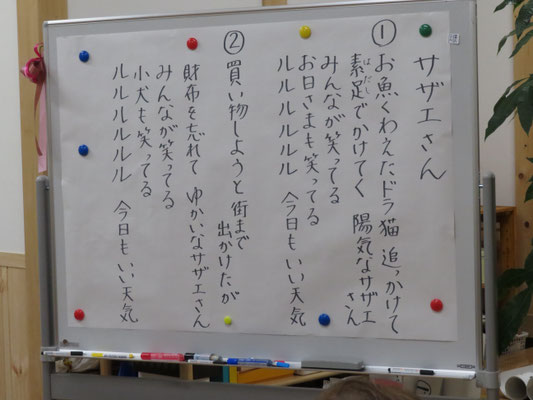 サザエさん
① お魚くわえたドラ猫 追っかけて
素足でかけてく 陽気なサザエさん
はだし
みんなが笑ってる
お日さまも笑ってる
ルルルルルル 今日もいい天気
② 買い物しようと街まで出かけたが
財布を忘れて ゆかいなサザエさん
みんなが笑ってる
小犬も笑ってる
ルルルルルル 今日もいい天気